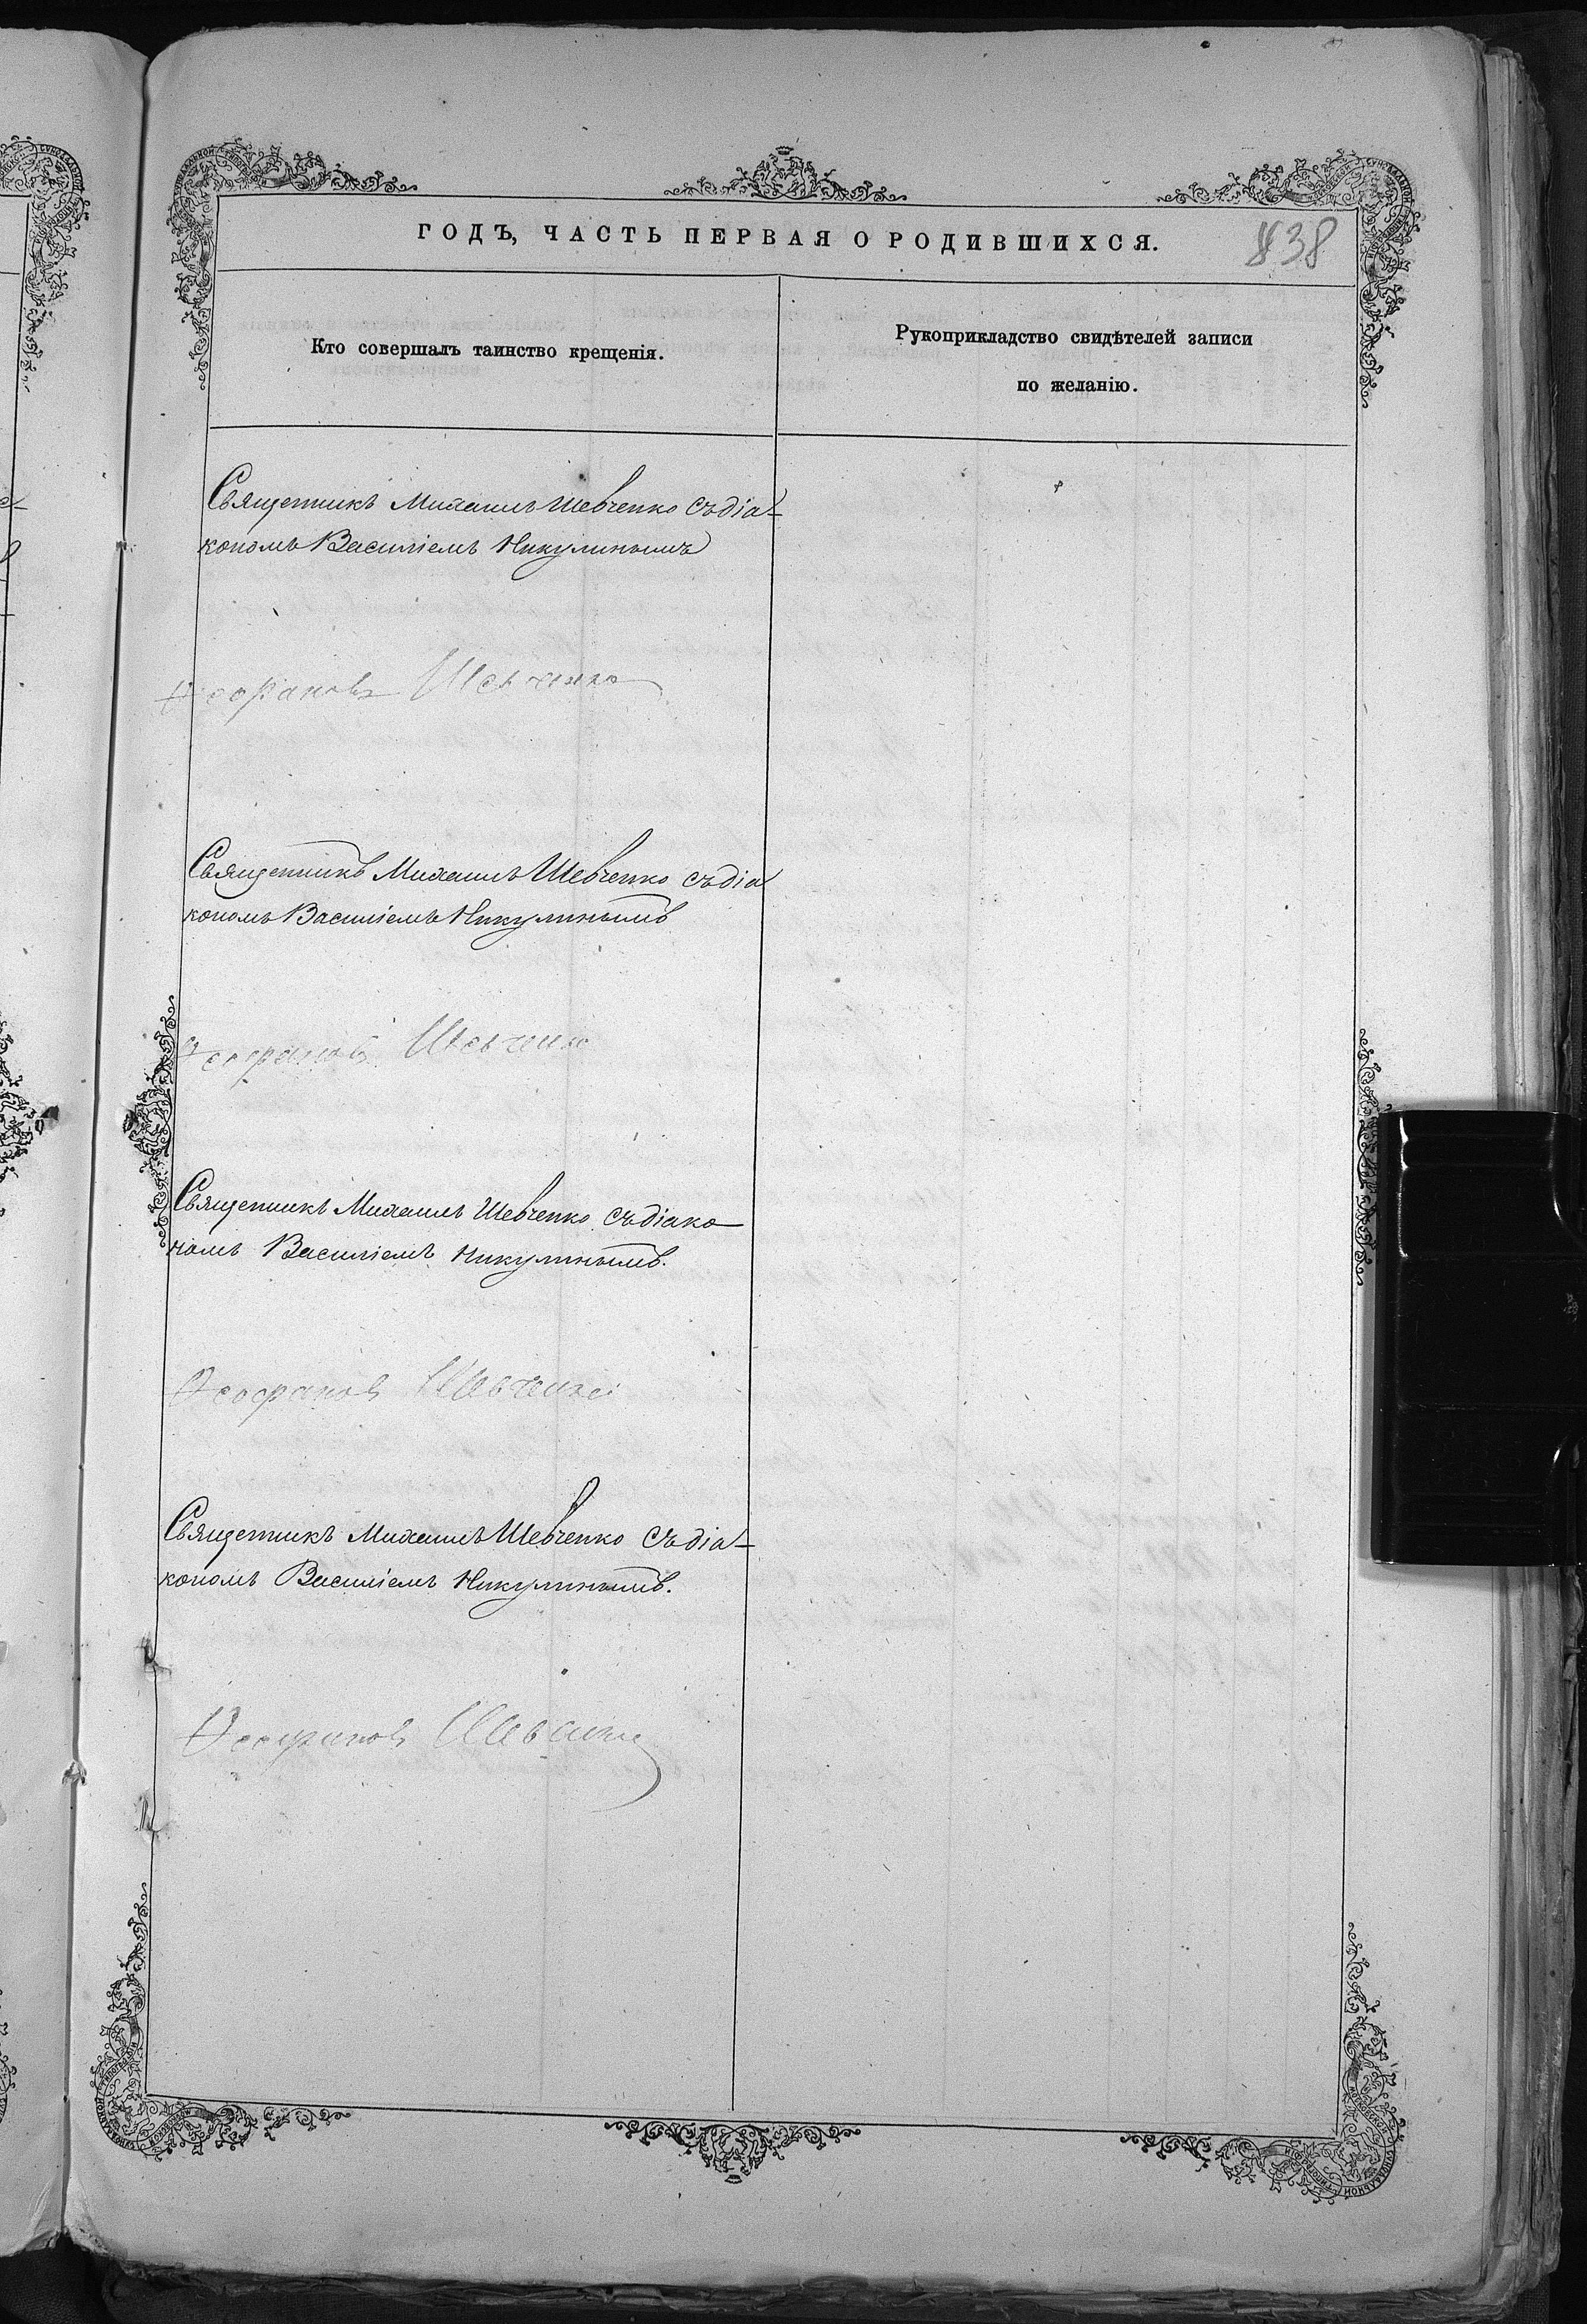 ГОДЪ, ЧАСТЬ ПЕРВАЯ О РОДИВШИХСЯ.
838
Кто совершалъ таинство крещенія.
Рукоприкладство свидѣтелей записи
по желанію.
Священникъ Михаилъ Шевченко съ діа-
кономъ Василіемъ Никулинымъ
Шевченко
Священникъ Михаилъ Шевченко съ діа
кономъ Василіемъ Никулинымъ
Шевченко
Священникъ Михаилъ Шевченко съ діако
номъ Василіемъ Никулинымъ.
Шевченко
Священникъ Михаилъ Шевченко съ діа-
кономъ Василіемъ Никулинымъ.
Шевченко